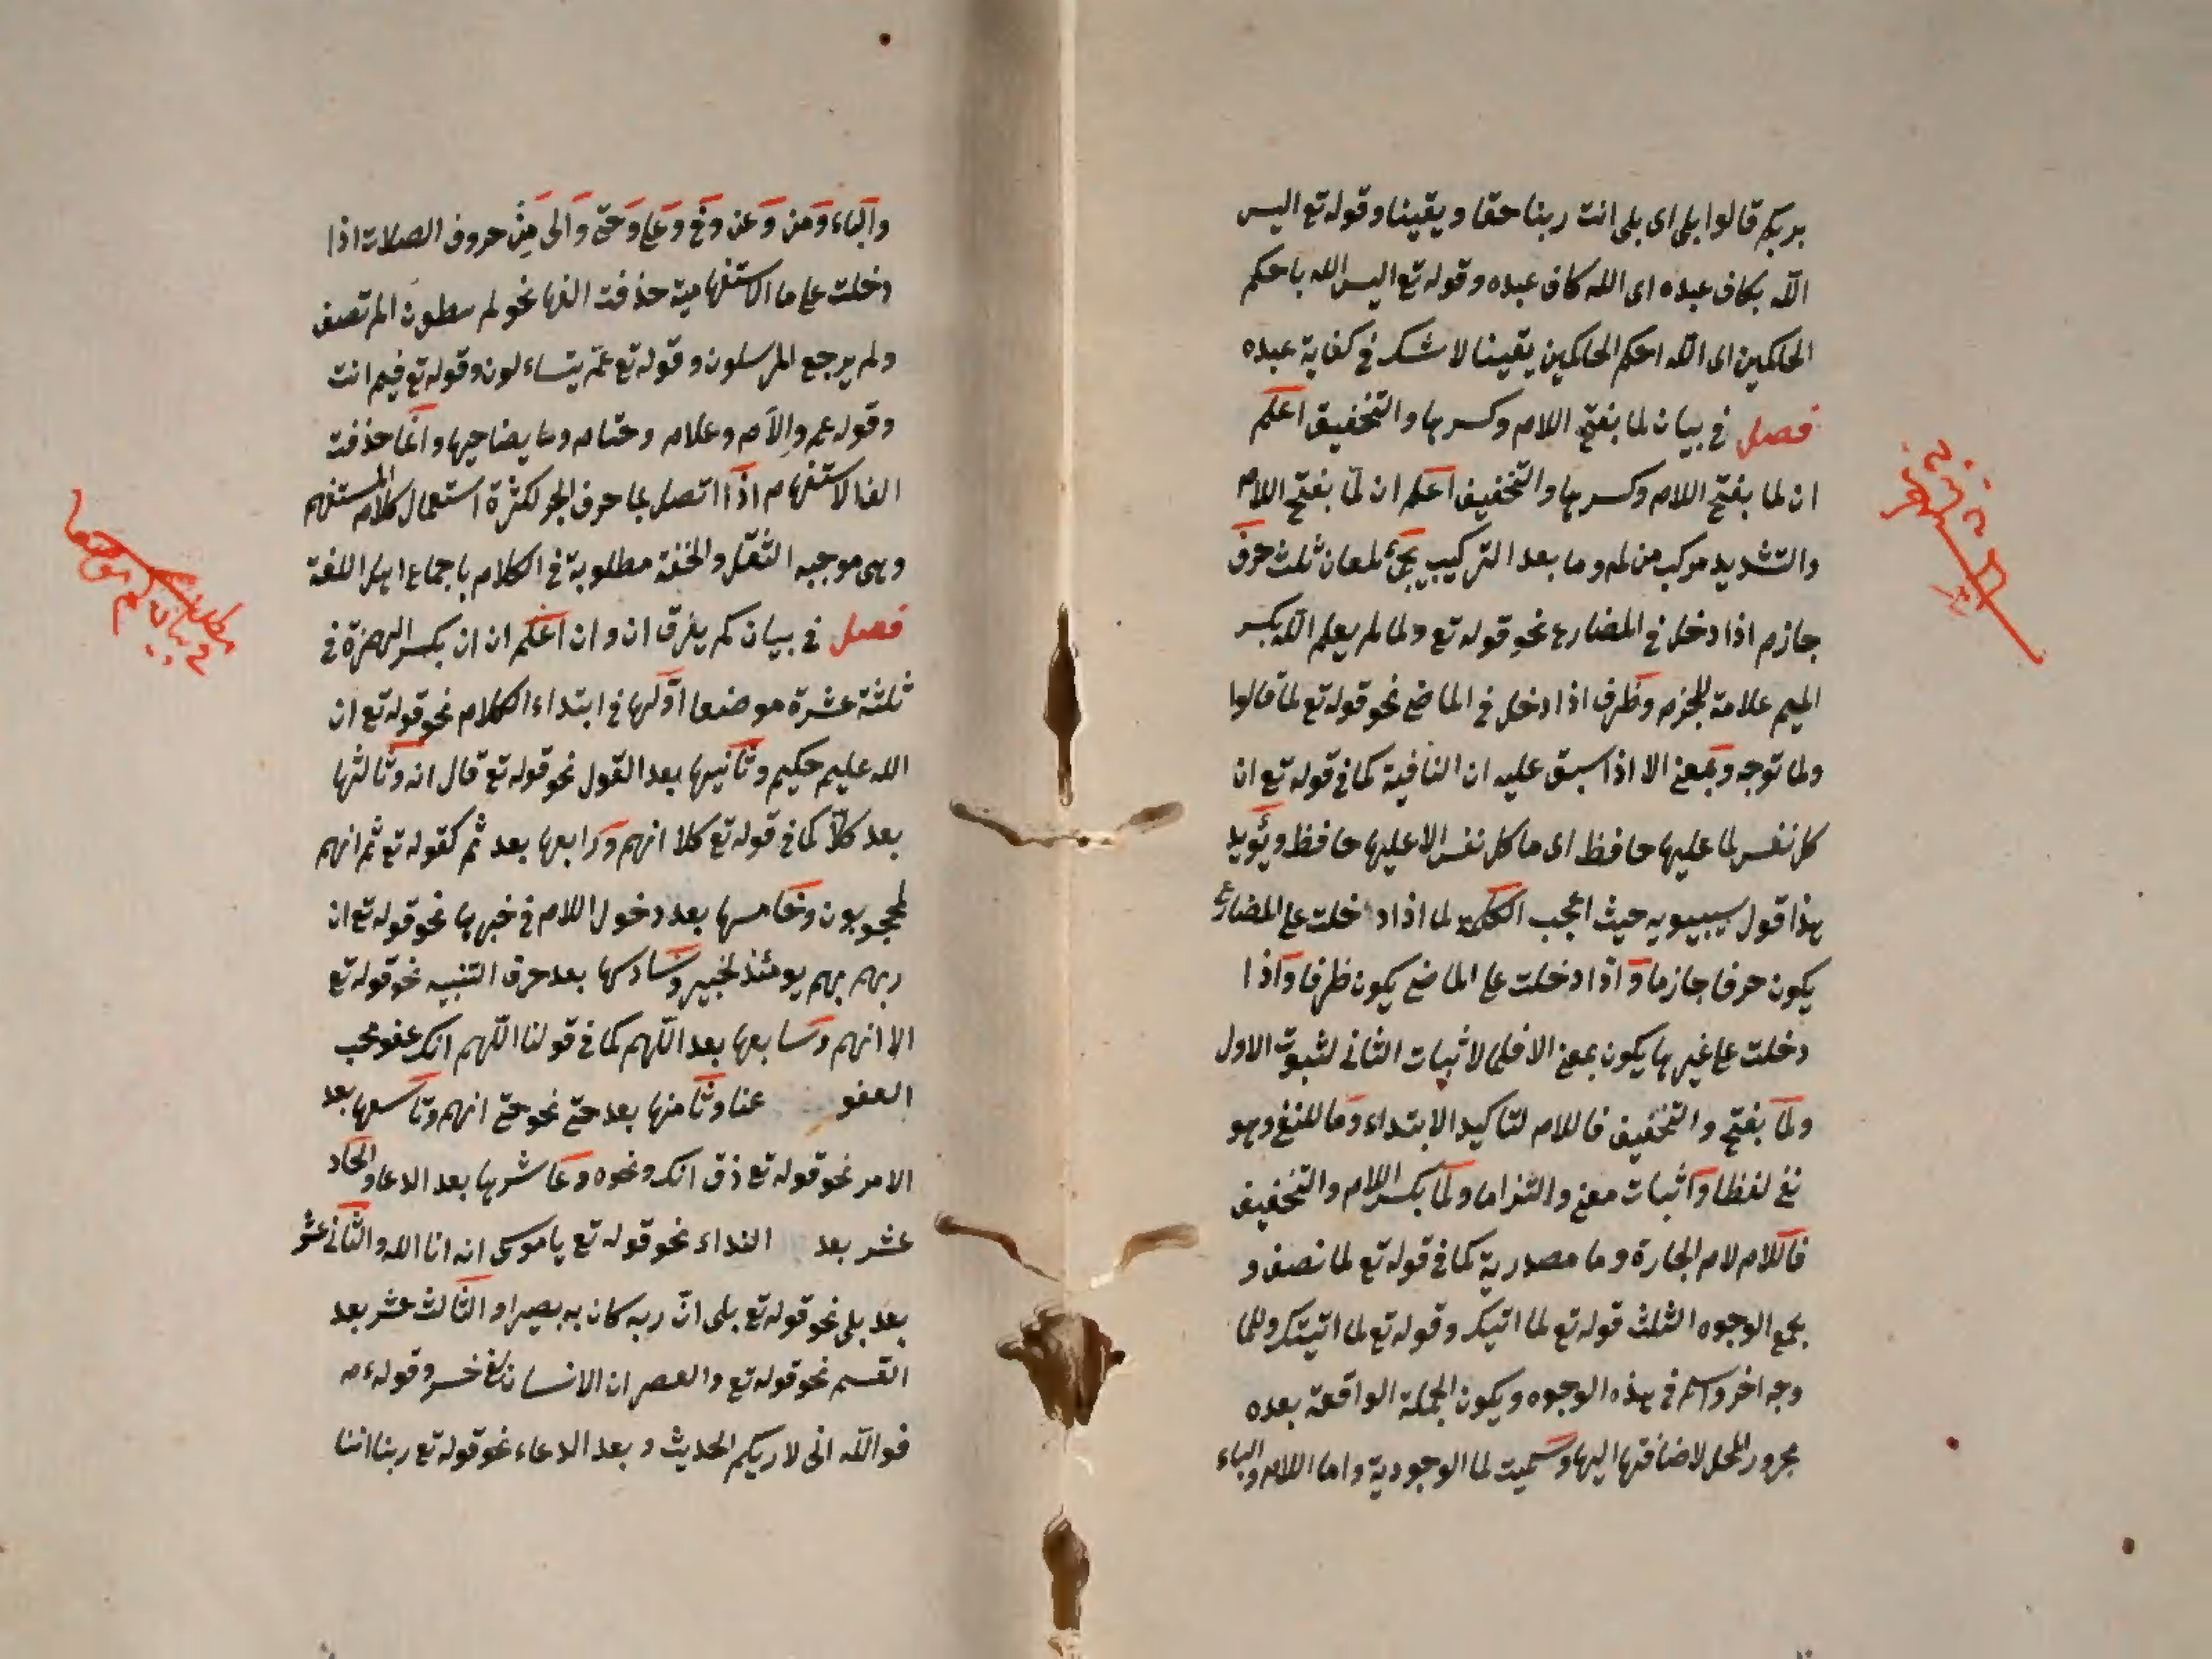 بربكم قالوا بلى اى بلى انت ربنا حقا ويقينا وقوله تع اليس
الله بكاف عبده اى الله كاف عبده وقوله تع اليس الله باحكم
الحاكمين اى الله احكم الحاكمين يقينا لا شك فى كفاية عبده
فصل فى بيان لما بفتح اللام وكسرها والتخفيف اعلم
ان لما بفتح اللام وكسرها والتخفيف اعلم ان لمّا بفتح اللام
والتشديد مركب من لم وما بعد التركيب يجئ لمعان ثلث حرف
جازم اذا دخل فى المضارع نحو قوله تع ولما لم يعلم الله بكسر
الميم علامة للجزم وظرف اذا دخل فى الماضى نحو قوله تع لما قالوا
ولما توجه وبمعنى الا اذا سبق عليه ان النافية كما فى قوله تع ان
كل نفس لما عليها حافظ اى ما كل نفس الا عليها حافظ ويؤيد
هذا قول سيبويه حيث اعجب الكلمة لما اذا دخلت على المضارع
يكون حرفا جازما واذا دخلت على الماضى يكون ظرفا واذا
دخلت على غيرها يكون بمعنى الا فلما لاثبات الثانى لثبوت الاول
ولما بفتح والتخفيف فاللام لتاكيد الابتداء وما للنفى وهو
نفى لفظا واثبات معنى والتزاما ولما بكسر اللام والتخفيف
فاللام لام الجارة وما مصدرية كما فى قوله تع لما تصف و
بجمع الوجوه الثلث قوله تع لما اتيك وقوله تع لما اتيتك وللما
وجه اخر واسم فى هذه الوجوه ويكون الجملة الواقعة بعده
مجرور المحل لاضافتها اليها وسميت لما الوجودية واما اللام والباء
والباء ومن وعن وفى وعلى وحتى والى من حروف الصلات اذا
دخلت على ما الاستفهامية حذفت الفها نحو لم الم تصف
ولم يرجع المرسلون وقوله تع عمّ يتساءلون وقوله تع فيم انت
وقوله عم والام وعلام وحتام وما يضاحيها وانما حذفت
الف الاستفهام اذا اتصل بما حرف الجر لكثرة استعمال كلام المستفهم
وهى موجبه الثقل والخفة مطلوبة فى الكلام باجماع اهل اللغة
فصل فى بيان كم يفرق ان وان اعلم ان ان بكسر الهمزة فى
ثلثة عشرة موضعا اولها فى ابتداء الكلام نحو قوله تع ان
الله عليم حكيم وثانيها بعد القول نحو قوله تع قال انه وثالثها
بعد كلا كما فى قوله تع كلا انهم ورابعها بعد ثم كقوله تع ثم انهم
لمحجوبون وخامسها بعد دخول اللام فى خبرها نحو قوله تع ان
ربهم بهم يومئذ لخبير وسادسها بعد حرف التنبيه نحو قوله تع
الا انهم وسابعها بعد اللهم كما فى قولنا اللهم انك عفو تحب
العفو عنا وثامنها بعد حتى نحو حتى انهم وتاسعها بعد
الامر نحو قوله تع ذق انك ونحوه وعاشرها بعد الدعا والحاد
عشر بعد النداء نحو قوله تع يا موسى انه انا الله والثانى عشر
بعد بلى نحو قوله تع بلى ان ربه كان به بصيرا والثالث عشر بعد
القسم نحو قوله تع والعصر ان الانسان لفى خسر وقوله عم
فوالله انى لاريكم الحديث وبعد الدعاء نحو قوله تع ربنا اننا